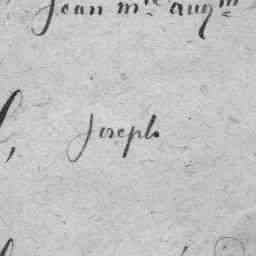 Jean m.re aug.in
Joseph